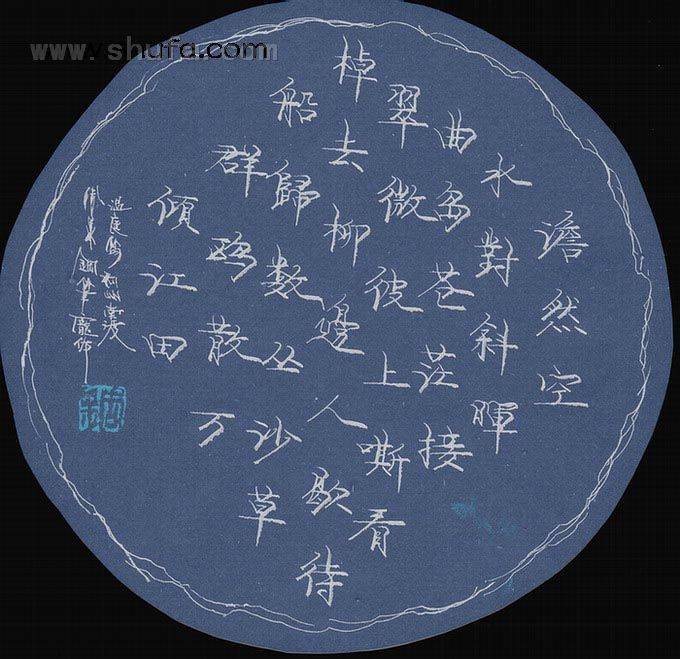 www.shufa.com
澹然空
水對斜暉
曲島苍茫接
翠微波上嘶看
棹去柳邊人歇待
船歸數丛沙草
群鸥散万
傾江田
温庭筠利州南渡
鋼筆